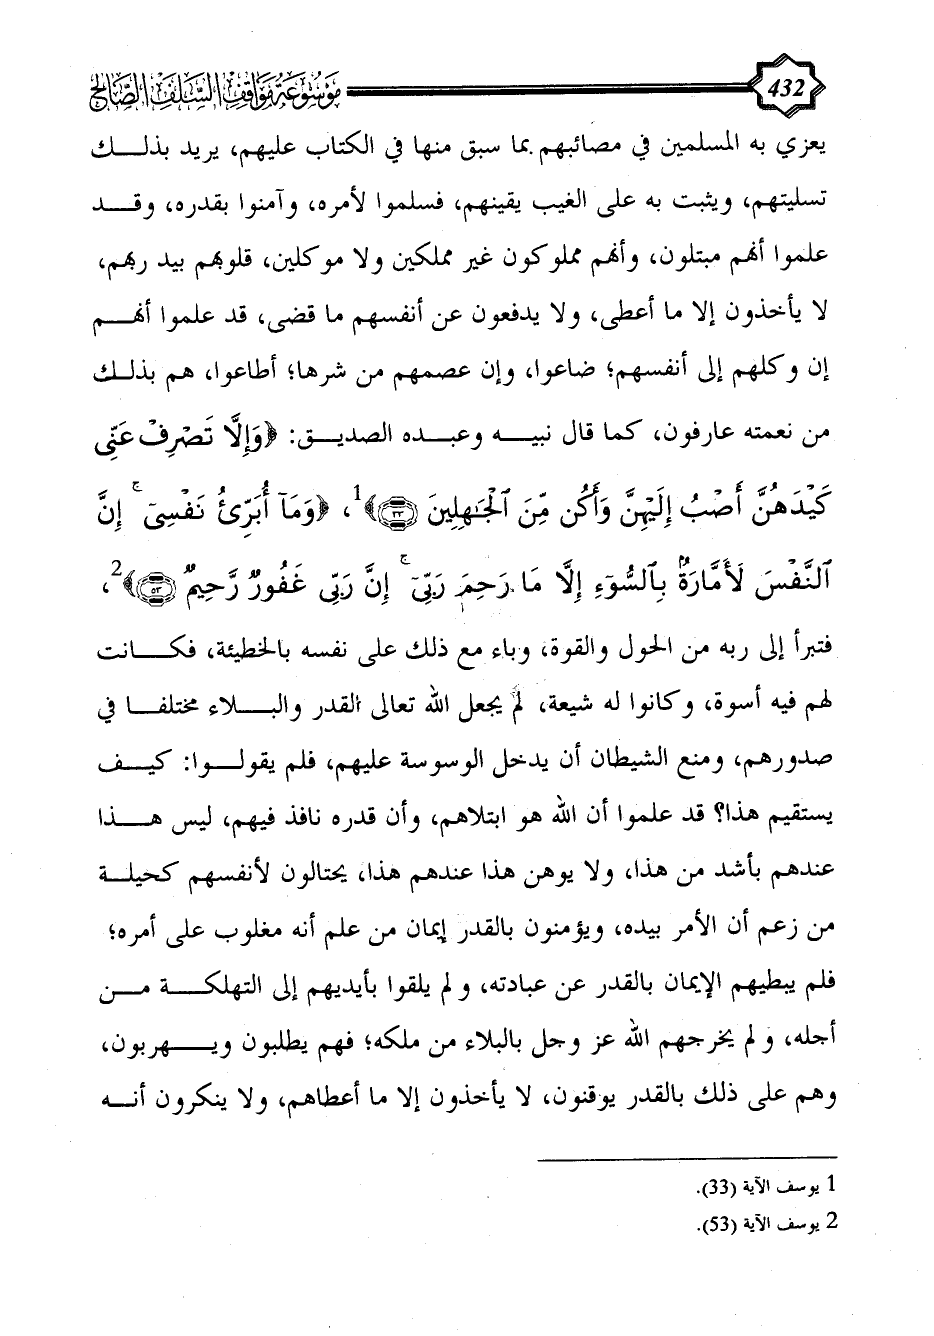 432
موسوعة مواقف السلف الصالح
يعزي به المسلمين في مصائبهم بما سبق منها في الكتاب عليهم، يريد بذلك
تسليتهم، ويثبت به على الغيب يقينهم، فسلموا لأمره، وآمنوا بقدره، وقد
علموا أنهم مبتلون، وأنهم مملوكون غير مملكين ولا موكلين، قلوبهم بيد ربهم،
لا يأخذون إلا ما أعطى، ولا يدفعون عن أنفسهم ما قضى، قد علموا أنهم
إن وكلهم إلى أنفسهم؛ ضاعوا، وإن عصمهم من شرها؛ أطاعوا، هم بذلك
من نعمته عارفون، كما قال نبيه وعبده الصديق: ﴿وَإِلَّا تَصْرِفْ عَنِّى
كَيْدَهُنَّ أَصْبُ إِلَيْهِنَّ وَأَكُن مِّنَ ٱلْجَٰهِلِينَ ٣٣﴾1، ﴿وَمَآ أُبَرِّئُ نَفْسِىٓ ۚ إِنَّ
ٱلنَّفْسَ لَأَمَّارَةٌۢ بِٱلسُّوٓءِ إِلَّا مَا رَحِمَ رَبِّىٓ ۚ إِنَّ رَبِّى غَفُورٌ رَّحِيمٌ ٥٣﴾2،
فتبرأ إلى ربه من الحول والقوة، وباء مع ذلك على نفسه بالخطيئة، فكانت
لهم فيه أسوة، وكانوا له شيعة، لم يجعل الله تعالى القدر والبلاء مختلفا في
صدورهم، ومنع الشيطان أن يدخل الوسوسة عليهم، فلم يقولوا: كيف
يستقيم هذا؟ قد علموا أن الله هو ابتلاهم، وأن قدره نافذ فيهم، ليس هذا
عندهم بأشد من هذا، ولا يوهن هذا عندهم هذا، يحتالون لأنفسهم كحيلة
من زعم أن الأمر بيده، ويؤمنون بالقدر إيمان من علم أنه مغلوب على أمره؛
فلم يبطيهم الإيمان بالقدر عن عبادته، ولم يلقوا بأيديهم إلى التهلكة من
أجله، ولم يخرجهم الله عز وجل بالبلاء من ملكه؛ فهم يطلبون ويهربون،
وهم على ذلك بالقدر يوقنون، لا يأخذون إلا ما أعطاهم، ولا ينكرون أنه
1 يوسف الآية (33).
2 يوسف الآية (53).